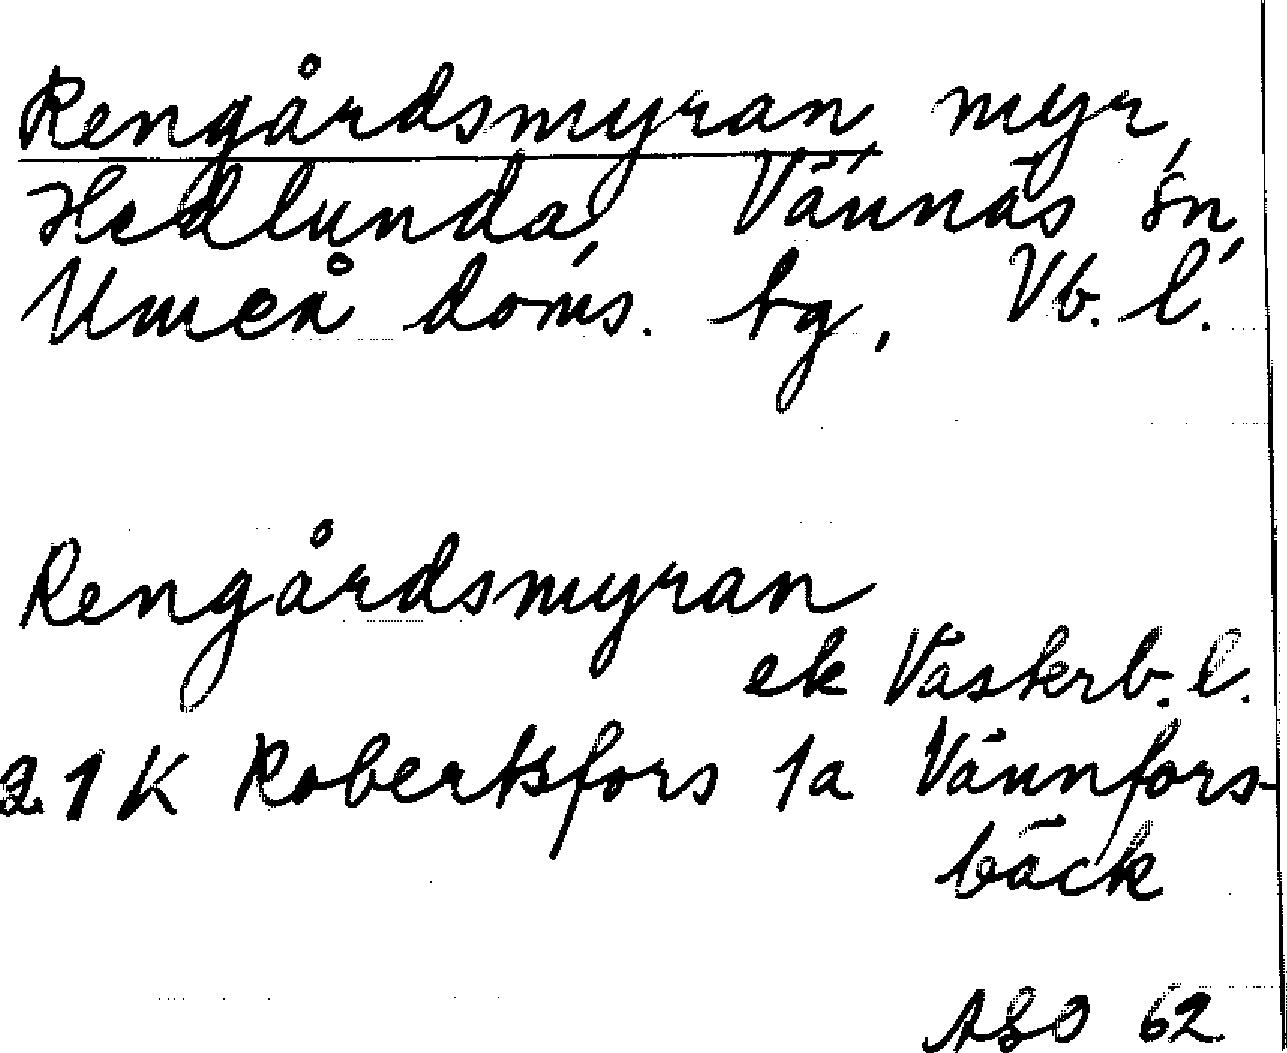 Rengårdsmyran myr,
Hedlunda, Vännäs sn,
Umeå doms. tg, Vb. l.
Rengårdsmyran
ek Västerb. l.
21K Robertsfors 1a Vännfors-
bäck
ASO 62